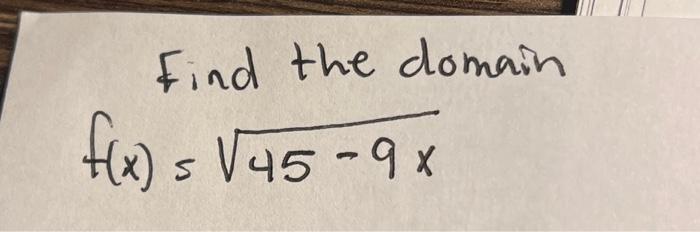 Find the domain
f(x) = √45 - 9x